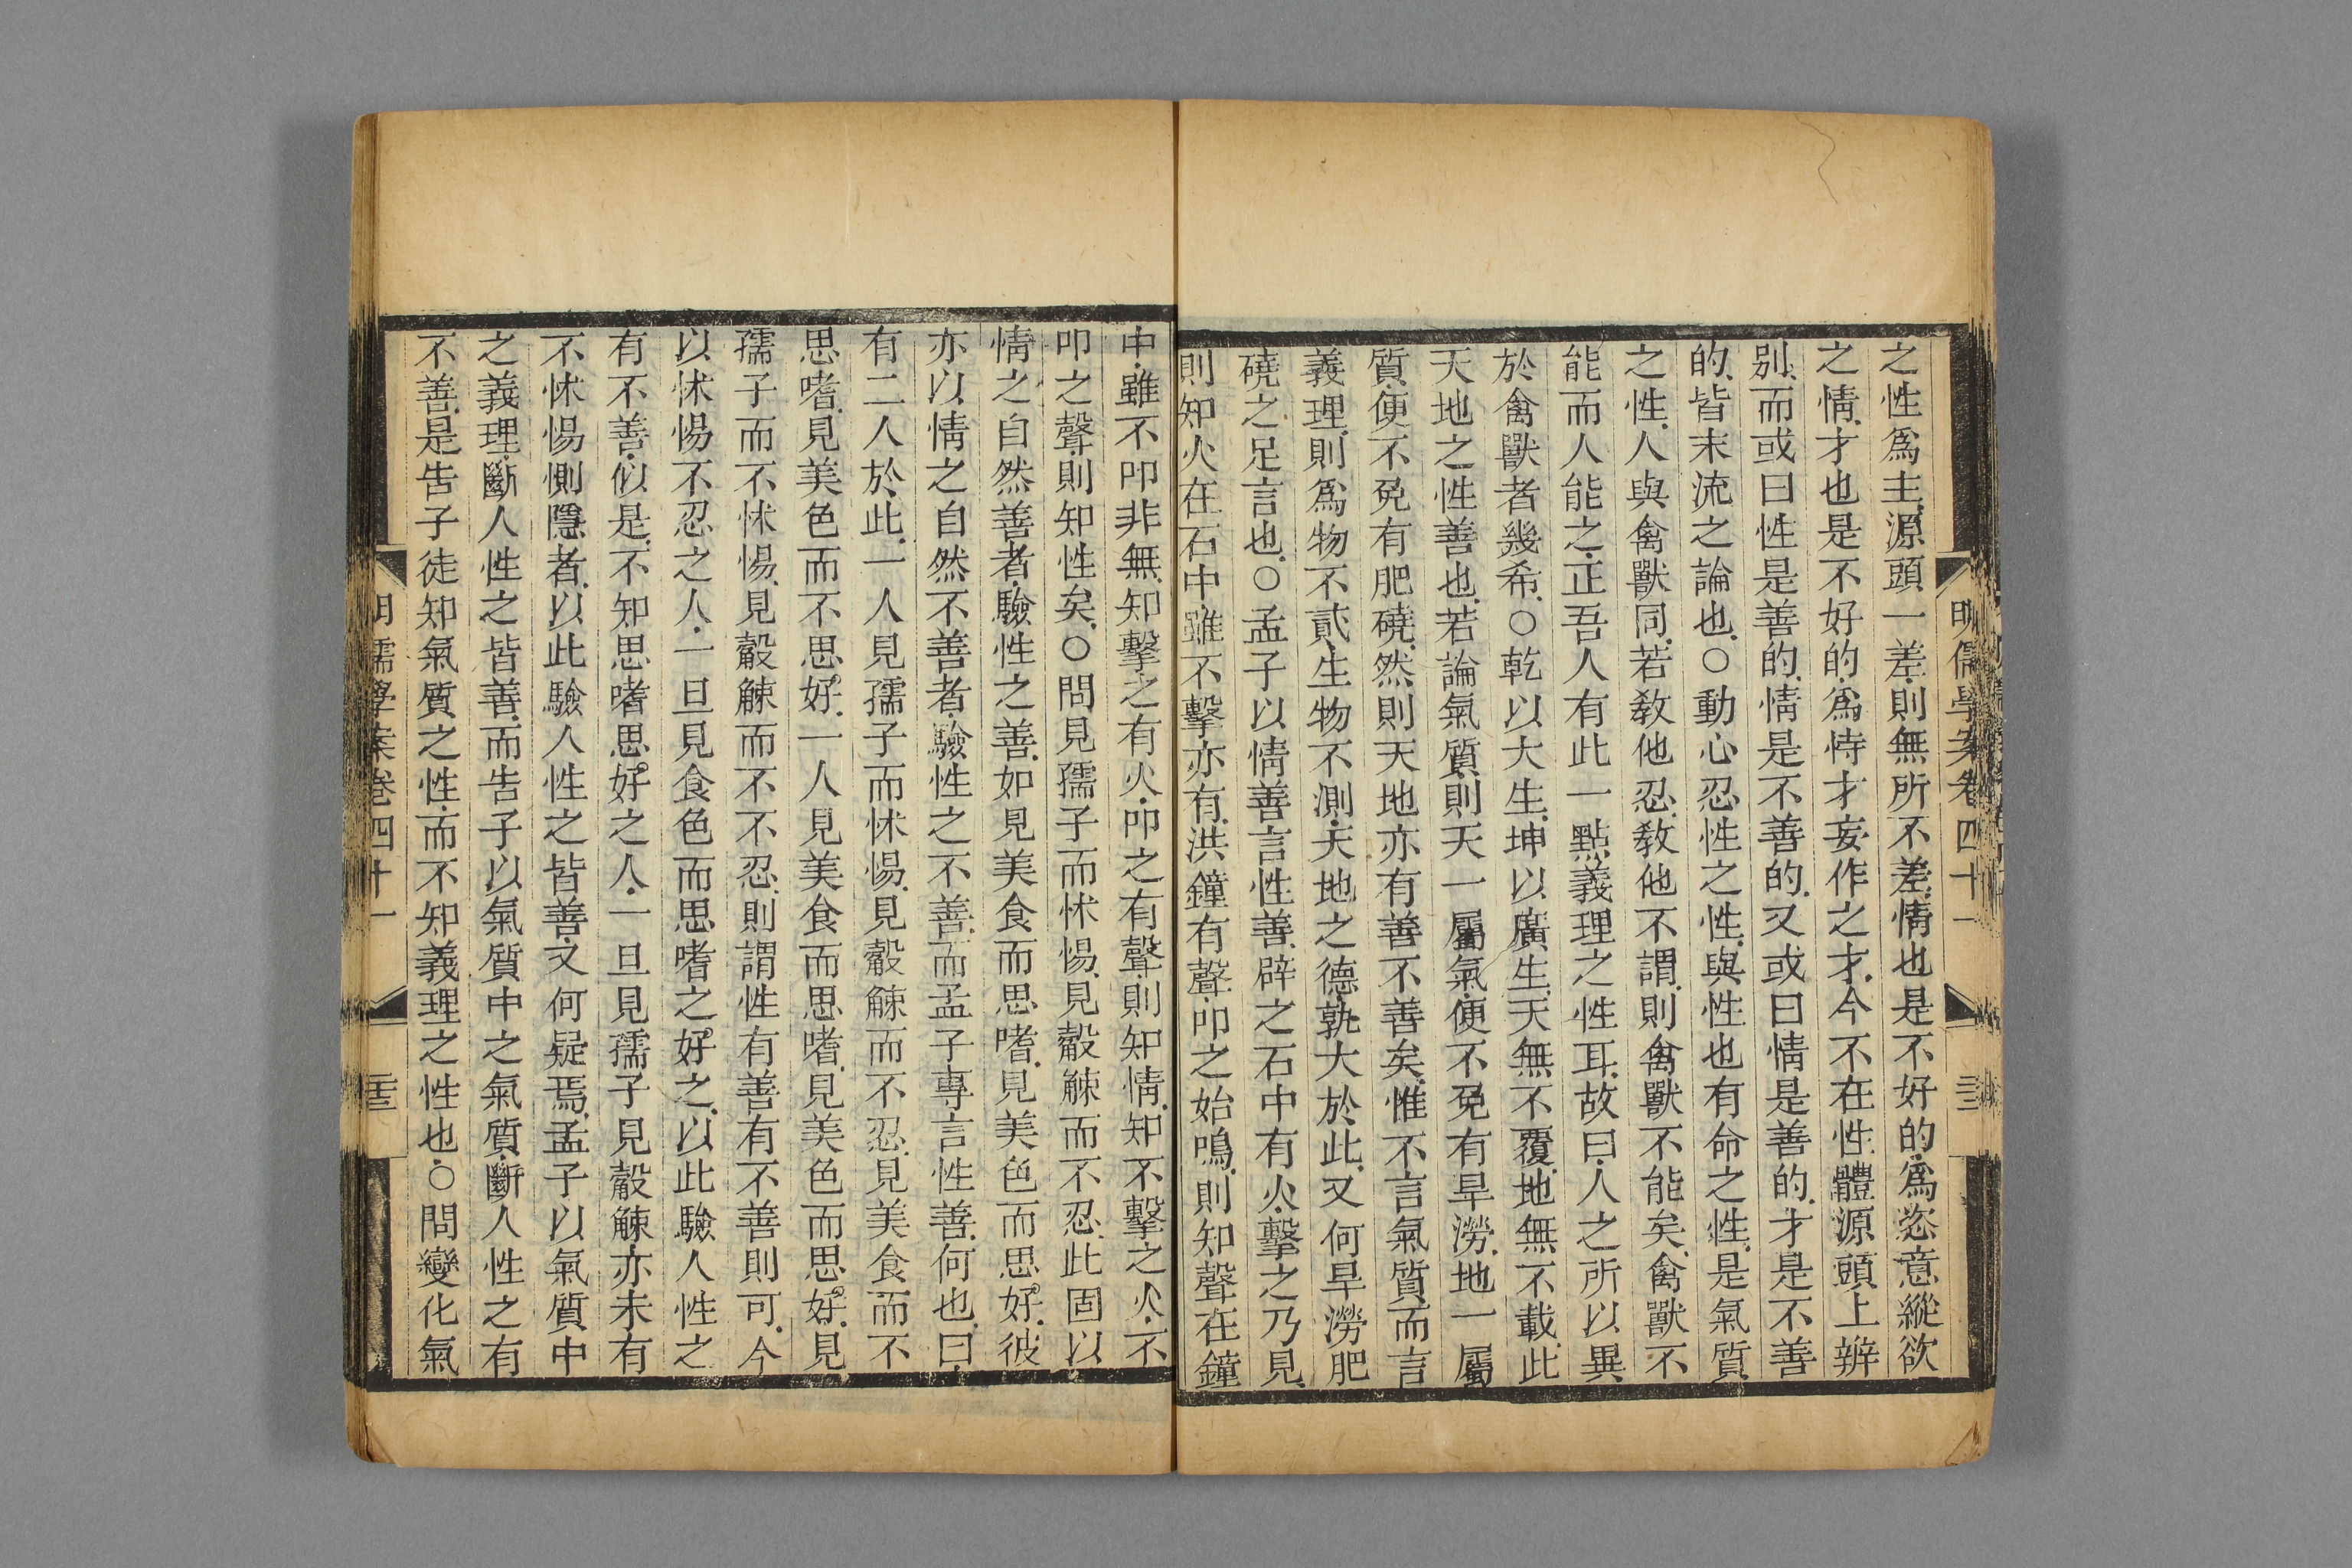 明儒學案卷四十一
三三
之性爲主源頭一差則無所不差情也是不好的爲恣意縱欲
之情才也是不好的爲恃才妄作之才今不在性體源頭上辨
别而或曰性是善的情是不善的又或曰情是善的才是不善
的皆末流之論也○動心忍性之性與性也有命之性是氣質
之性人與禽獸同若教他忍教他不謂則禽獸不能矣禽獸不
能而人能之正吾人有此一點義理之性耳故曰人之所以異
於禽獸者幾希○乾以大生坤以廣生天無不覆地無不載此
天地之性善也若論氣質則天一屬氣便不免有旱澇地一屬
質便不免有肥磽然則天地亦有善不善矣惟不言氣質而言
義理則爲物不貳生物不測天地之德孰大於此又何旱澇肥
磽之足言也○孟子以情善言性善辟之石中有火擊之乃見
則知火在石中雖不擊亦有洪鐘有聲叩之始鳴則知聲在鐘
中雖不叩非無知擊之有火叩之有聲則知情知不擊之火不
叩之聲則知性矣○問見孺子而怵惕見觳觫而不忍此固以
情之自然善者驗性之善如見美食而思嗜見美色而思好彼
亦以情之自然不善者驗性之不善而孟子專言性善何也曰
有二人於此一人見孺子而怵惕見觳觫而不忍見美食而不
思嗜見美色而不思好一人見美食而思嗜見美色而思好見
孺子而不怵惕見觳觫而不不忍則謂性有善有不善則可今
以怵惕不忍之人一旦見食色而思嗜之好之以此驗人性之
有不善似是不知思嗜思好之人一旦見孺子見觳觫亦未有
不怵惕惻隱者以此驗人性之皆善又何疑焉孟子以氣質中
之義理斷人性之皆善而告子以氣質中之氣質斷人性之有
不善是告子徒知氣質之性而不知義理之性也○問變化氣
明儒學案卷四十一